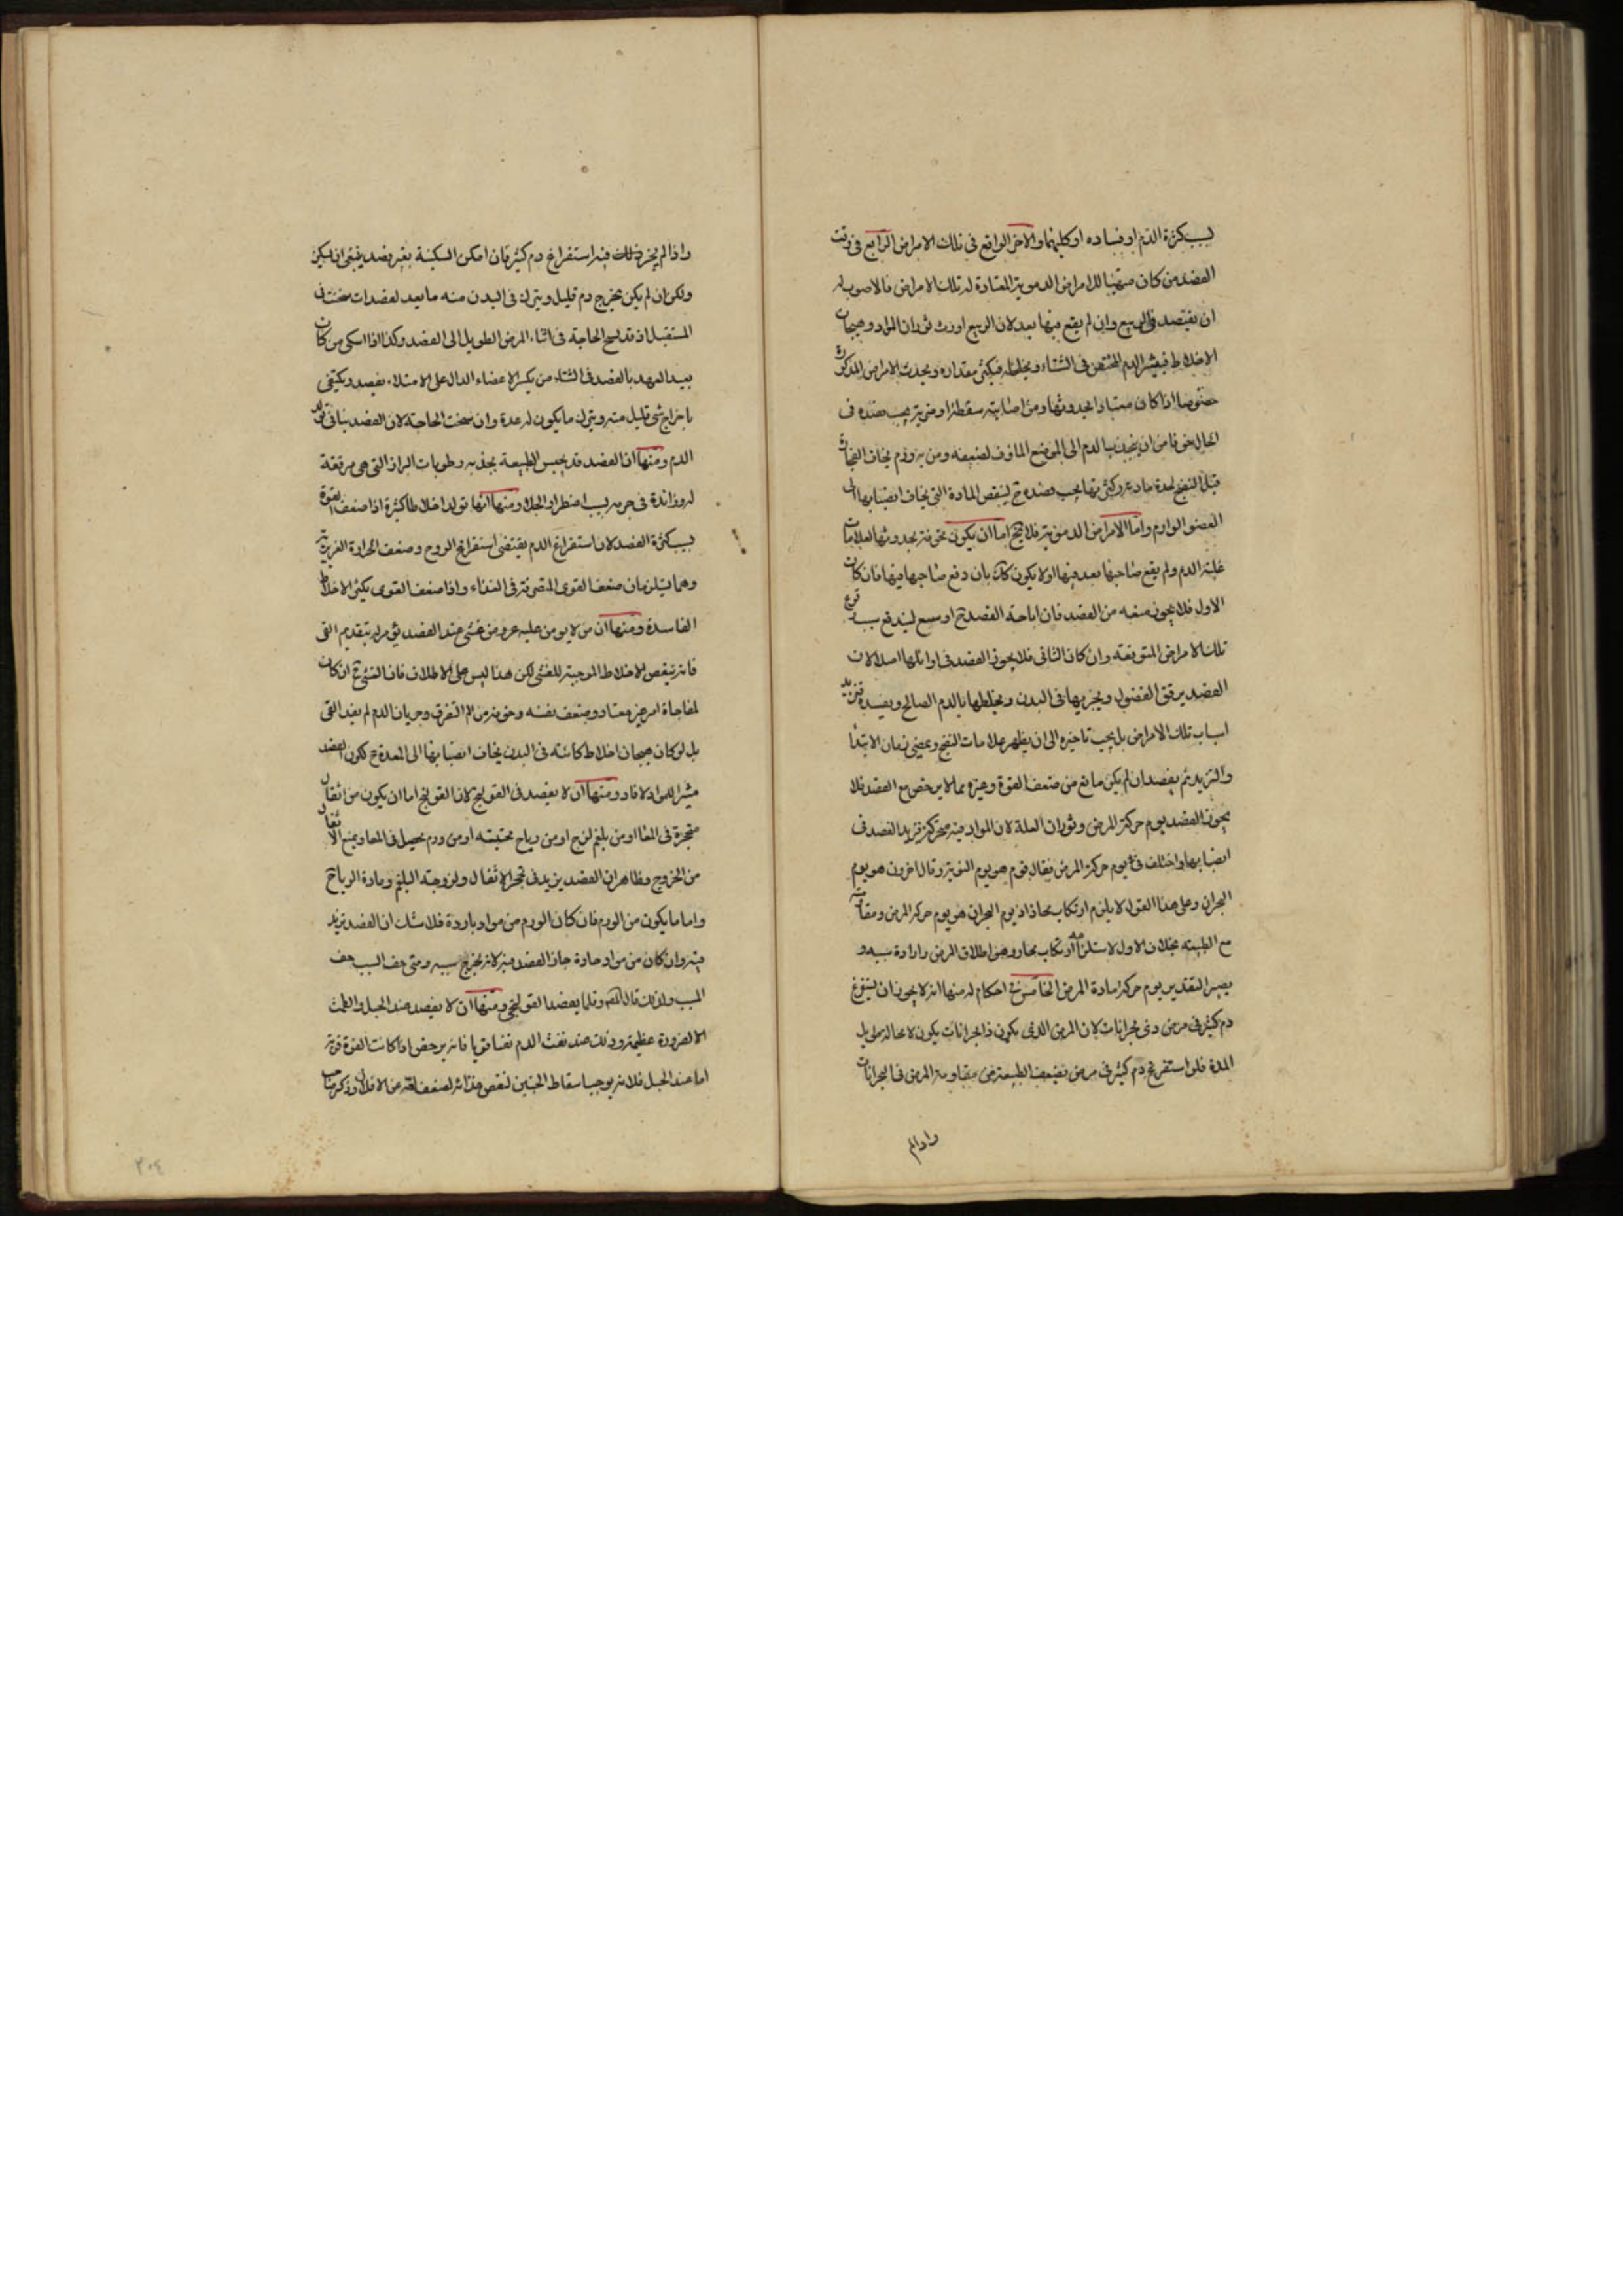 لسبب كثرة الدم او فساده او كليهما والاخر الواقع في تلك الامراض الرابع في وقت
الفصد من كان متهيئا للامراض الدموية المعتادة له تلك الامراض فالاصوب له
ان يفتصد في الربيع وان لم يقع فيها بعد لان الربيع اورث ثوران المواد وهيجان
الاخلاط فيثير الدم المحتقن في الشتاء ويخلخله فيكثر مقداره ويحدث الامراض المذكورة
خصوصا اذا كان معتادا بحدوثها ومن اصابته سقطة او ضربة يجب فصده في
الحال خوفا من ان ينجذب الدم الى الموضع الماوف لضعفه ومن به ورم يخاف انفجاره
قبل النضج لحدة مادته وكثرتها يجب فصده ح لينقص المادة التي يخاف انصبابها الى
العضو الوارم واما الامراض الدموية فلا يخ اما ان يكون مخوفة بحدوثها لعلامات
غلبة الدم ولم يقع صاحبها بعد فيها اولا يكون كك بان وقع صاحبها فيها فان كان
الاول فلا يجوز منعه من الفصد فان اباحة الفصد ح اوسع ليندفع بسببه وقوع
تلك الامراض المتوقعة وان كان الثاني فلا يجوز الفصد في اوائلها اصلا لان
الفصد يرقق الفضول ويجريها في البدن ويخلطها بالدم الصالح ويفسده فتزيد
اسباب تلك الامراض بل يجب تاخيره الى ان يظهر علامات النضج ويمضي زمان الابتدا
والتزيد ثم يفصد ان لم يكن مانع من ضعف القوة وغيره مما لا يرخص مع الفصد فلا
يجوز الفصد يوم حركة المرض وثوران العلة لان المواد فيه متحركة فيزيد الفصد في
انصبابها واختلف في يوم حركة المرض فقال قوم هو يوم النوبة وقال اخرون هو يوم
البحران وعلى هذا القول لا يلزم ارتكاب مجاز اذ يوم البحران هو يوم حركة المرض ومقاومته
مع الطبيعة بخلاف الاول لاستلزامه ارتكاب مجاز وهو اطلاق المرض وارادة سببه و
يصير التقدير يوم حركة مادة المرض الخامس في احكام له منها انه لا يجوز ان يستفرغ
دم كثير في مرض ذي بحرانات لان المرض الذي يكون ذا بحرانات يكون لا محالة طويل
المدة فلو استفرغ دم كثير في مرض تضعف الطبيعة عن مقاومة المرض في البحرانات
واذا لم
واذا لم يجز ذلك فيه استفراغ دم كثير فان امكن السكينة بغير فصد ينبغي ان يسكن
ولكن ان لم يكن يخرج دم قليل ويترك في البدن منه ما يعد لفصدات سخت في
المستقبل اذ قد تسنح الحاجة في اثناء المرض الطويل الى الفصد وكذا اذا اشتكى من كان
بعيد العهد بالفصد في الشتاء من تكسر الاعضاء الدال على الامتلاء يفصد ويكتفي
باخراج شي قليل منه ويترك ما يكون له عدة وان سخت الحاجة لان الفصد ينافي تولد
الدم ومنها ان الفصد قد يحبس الطبيعة بجذبه رطوبات البراز التي هي مرققة
له وزائدة في جرمه لسبب اضطرار الخلاء ومنها انها تولد اخلاطا كثيرة اذا ضعف القوة
بسبب كثرة الفصد لان استفراغ الدم يقتضي استفراغ الروح وضعف الحرارة الغريزية
وهما يستلزمان ضعف القوى المتصرفة في الغذاء واذا ضعف القوى يكثر الاخلاط
الفاسدة ومنها ان من لا يومن عليه عروض غشي عند الفصد يؤمر له بتقديم القي
فانه ينقص الاخلاط الموجبة للغشي لكن هذا ليس على الاطلاق فان الغشي ح ان كان
لمفاجاة امر غير معتاد وضعف نفسه وخوفه من الم التفرق وجريان الدم لم يفد القي
بل لو كان هيجان اخلاط كائنة في البدن يخاف انصبابها الى المعدة ح لكون الفصد
مثيرا للمواد لافاد ومنها ان لا يفصد في القولنج لان القولنج اما ان يكون من اثفال
متحجرة في المعا او من بلغم لزج او من رياح محتبسة او من ورم يحصل في المعا ويمنع الاثفال
من الخروج وظاهر ان الفصد يزيد في تحجر الاثفال ولزوجة البلغم ومادة الرياح
واما ما يكون من الورم فان كان الورم من مواد باردة فلا شك ان الفصد يزيد
فيه وان كان من مواد حادة جاز الفصد فيه لانه يخرج سببه ومتى خف السبب خف
المسبب ولذلك قال المص وقلما يفصد القولنجي ومنها ان لا يفصد عند الحبل والطمث
الا لضرورة عظيمة وذلك عند نفث الدم نفثا قويا فانه يرخص اذا كانت القوة قوية
اما عند الحبل فلانه يوجب اسقاط الجنين لنقص غذائه لضعف لقوته عن الاقلال وذكر صاحب
٣٠٤